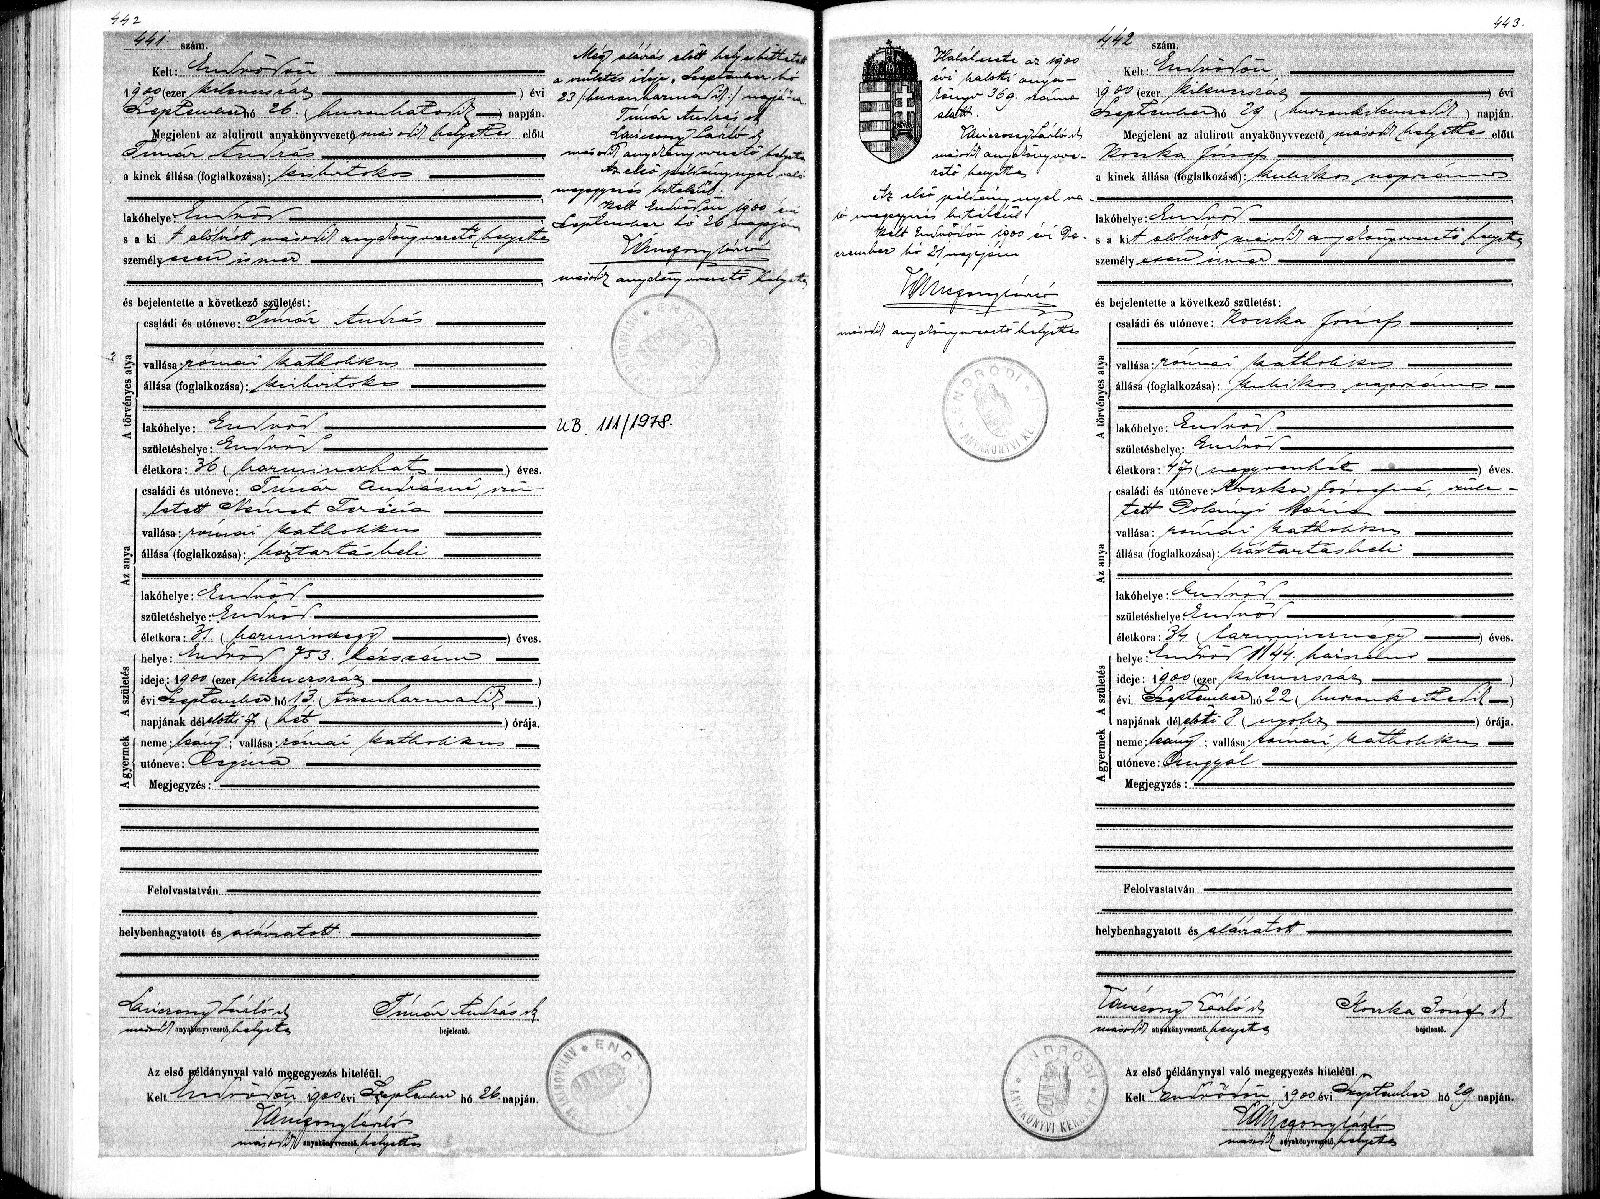 442
441 szám.
Kelt: Endrődön
1900 (ezer kilenczszáz ) évi
Szeptember hó 26. (huszonhatodik) napján.
Megjelent az alulirott anyakönyvvezető másodh helyettes előtt
Timár András
a kinek állása (foglalkozása): kisbirtokos
lakóhelye Endrőd
s a ki t alólirott másodh anyakönyvvezető helyettes
személyesen ismer
és bejelentette a következő születést:
A törvényes atya
családi és utóneve: Timár András
vallása: római katholikus
állása (foglalkozása): kisbirtokos
lakóhelye: Endrőd
születéshelye: Endrőd
életkora: 36 (harminczhat ) éves.
Az anya
családi és utóneve: Timár Andrásné, szü-
letett Német Terézia
vallása: római katholikus
állása (foglalkozása): háztartásbeli
lakóhelye: Endrőd
születéshelye: Endrőd
életkora: 31 (harminczegy ) éves.
A születés
helye: Endrőd 753. házszám
ideje: 1900 (ezer kilenczszáz )
évi Szeptember hó 13. (tizenharmadik )
napjának délelőtti 7 (hét ) órája.
A gyermek
neme: leány; vallása: római katholikus
utóneve: Regina
Megjegyzés:
Felolvastatván
helybenhagyatott és aláiratott
Váncsony László sk
másodh anyakönyvvezető helyettes
Timár András sk
bejelentő.
Az első példánynyal való megegyezés hiteléül.
Kelt Endrődön 1900 évi Szeptember hó 26. napján.
másodh anyakönyvvezető helyettes
Még aláirás előtt helyesbittetett
a születés ideje, Szeptember hó
23 /:huszonharmadik:/ napjára
Timár András sk
másodh anyakönyvvezető helyettes
Az első példánynyal való
megegyezés hiteléül.
Kelt Endrődön 1900 évi
Szeptember hó 26 napján
másodh anyakönyvvezető helyettes
UB. 111/1978.
443.
Halálesete az 1900
évi halotti anya-
könyv 369. száma
alatt.
másodh anyakönyvve-
zető helyettes
Az első példánynyal va-
ló megegyezés hiteléül.
Kelt Endrődön 1900 évi De-
czember hó 21 napján
másodh anyakönyvvezető helyettes
ENDRŐDI
ANYAKÖNYVI KE
442 szám.
Kelt: Endrődön,
1900 (ezer kilenczszáz ) évi
Szeptember hó 29 (huszonkilenczedik ) napján.
Megjelent az alulirott anyakönyvvezető másodh helyettes előtt
Koszka József
a kinek állása (foglalkozása): kubikos napszámos
lakóhelye: Endrőd
s a kit alólirott másodh anyakönyvvezető helyettes
személyesen ismer
és bejelentette a következő születést:
A törvényes atya
családi és utóneve: Koszka József
vallása: római katholikus
állása (foglalkozása): kubikos napszámos
lakóhelye: Endrőd
születéshelye: Endrőd
életkora: 47 (negyvenhét ) éves.
Az anya
családi és utóneve: Koszka Józsefné, szüle-
tett Polányi Mária
vallása: római katholikus
állása (foglalkozása): háztartásbeli
lakóhelye: Endrőd
születéshelye: Endrőd
életkora: 34 (harmincznégy ) éves.
A születés
helye: Endrőd 1144. házszám
ideje: 1900 (ezer kilenczszáz )
évi Szeptember hó 22 (huszonkettedik )
napjának délelőtti 8 (nyolcz ) órája.
A gyermek
neme: leány; vallása: római katholikus
utóneve: Angyal
Megjegyzés:
Felolvastatván
helybenhagyatott és aláiratott
Váncsony László sk
másodh anyakönyvvezető helyettes
Koszka József sk
bejelentő.
Az első példánynyal való megegyezés hiteléül.
Kelt Endrődön 1900 évi Szeptember hó 29 napján.
másodh anyakönyvvezető helyettes